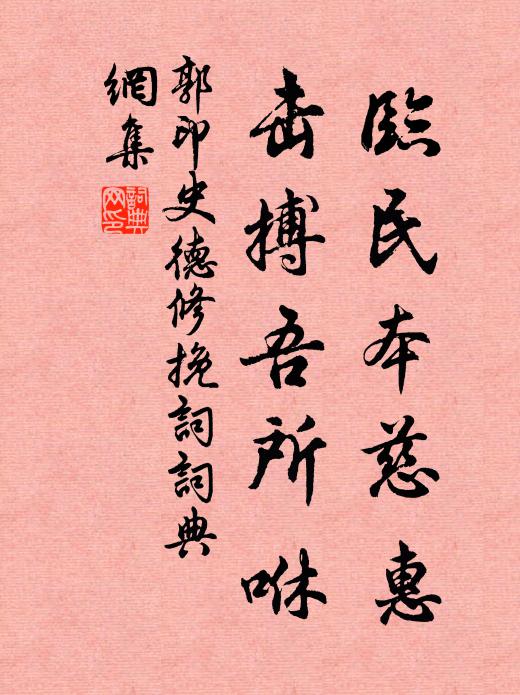 臨民本慈惠
击搏吾所咻
郭印史德修挽詞詞典
網集
詞典
网印